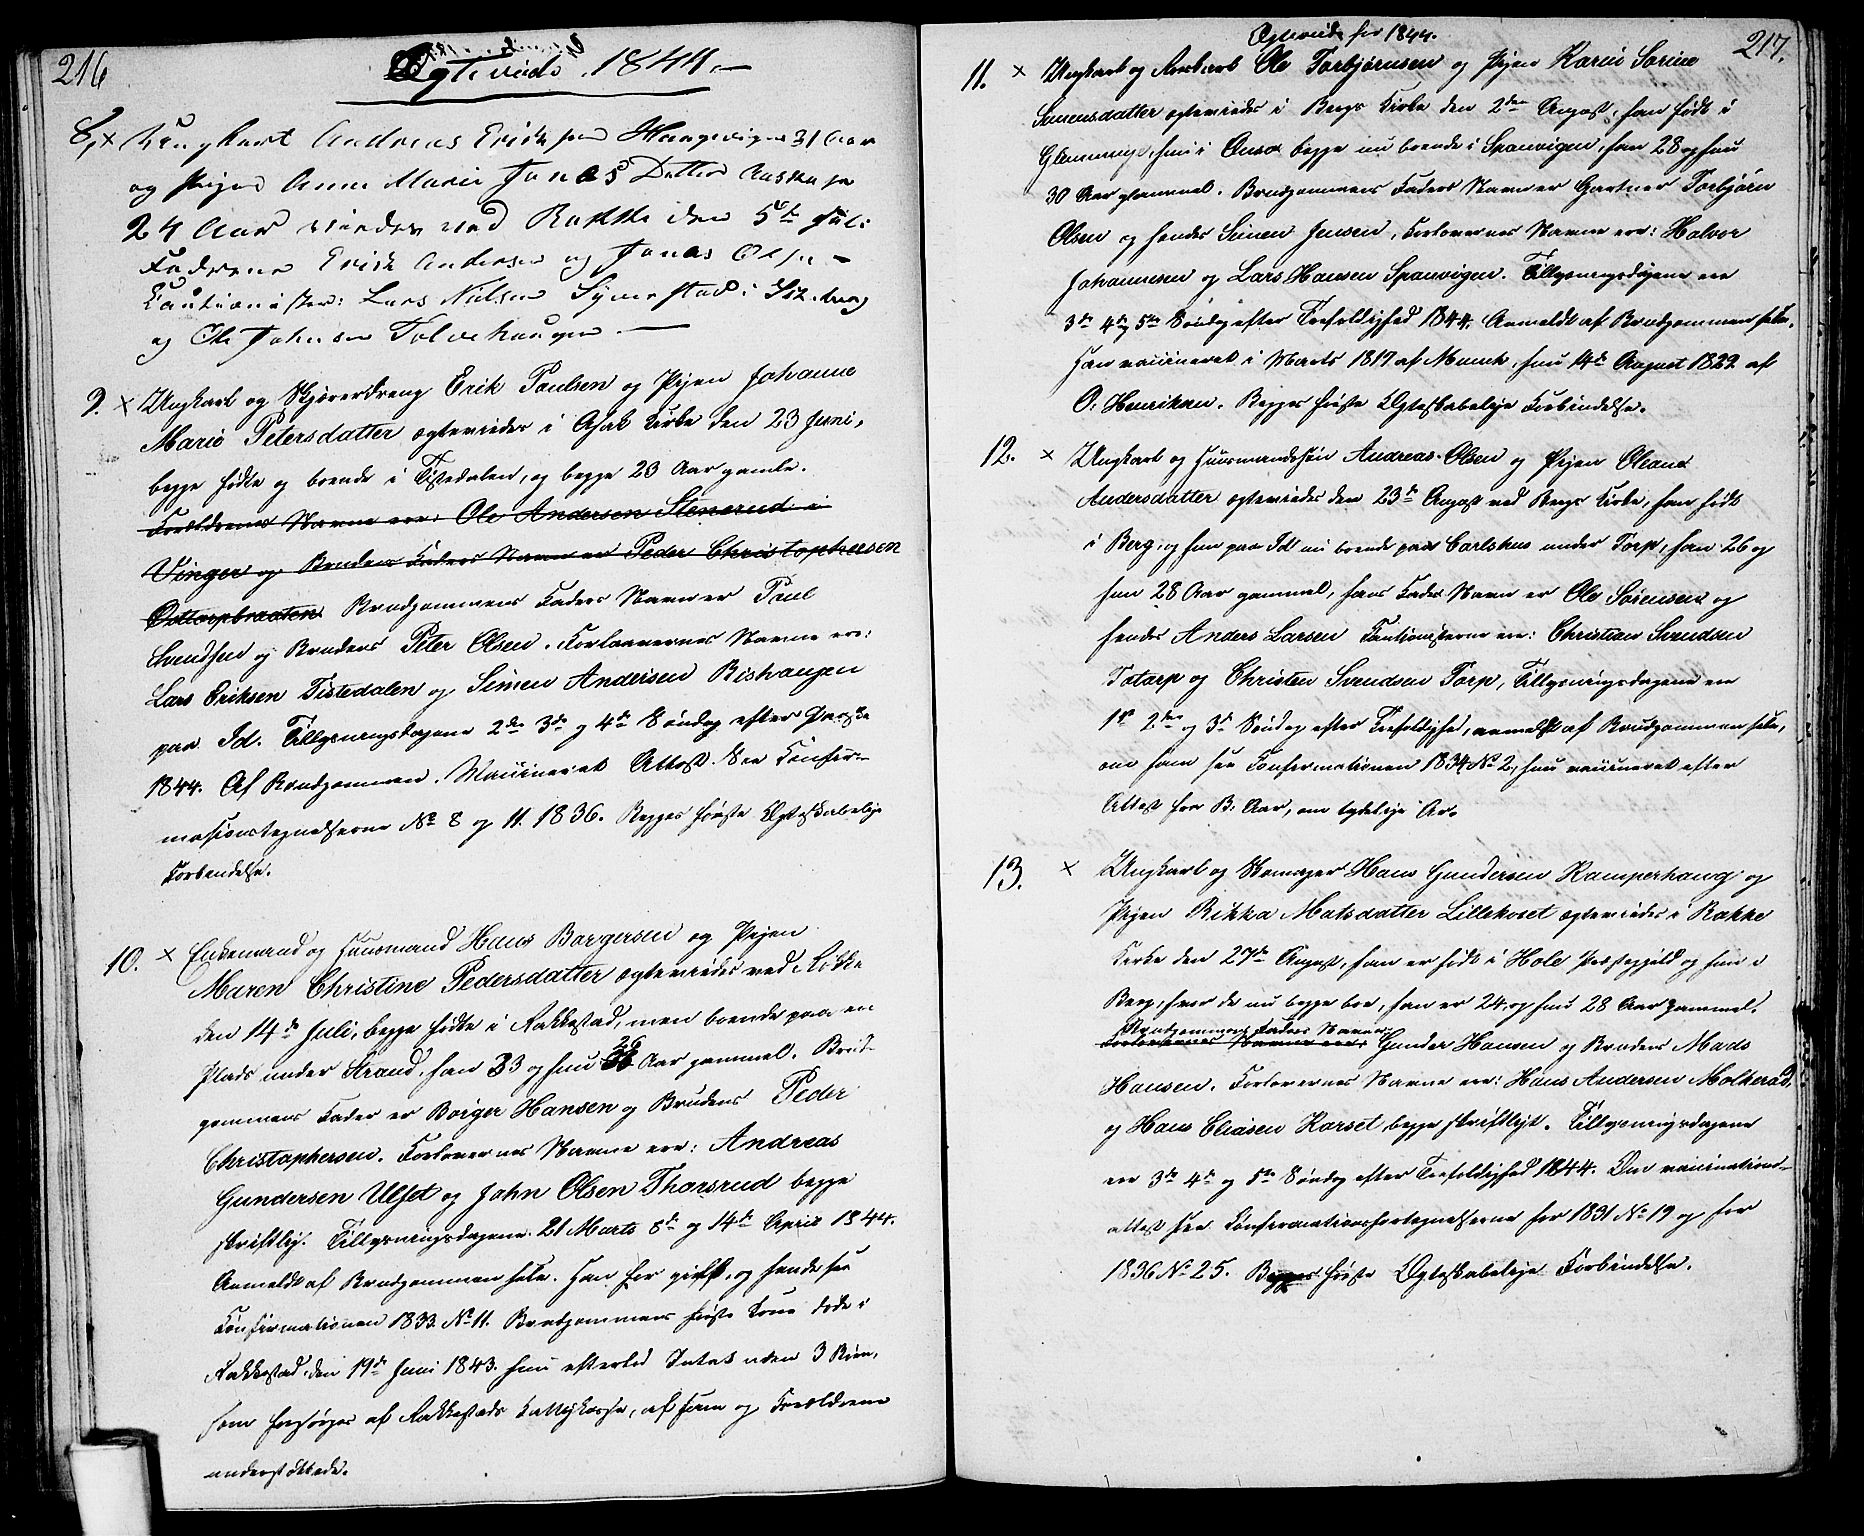 216
Ægteviede 1844.
8. × Ungkarl Andreas Ericksen Haugevigen 31 Aar
og Pigen Anne Marie Jonas Datter
24 Aar viedes ved Rokke den 5te Juli
Fædrene Erick Andersen og Jonas Olsen
Cautionister: Lars Nielsen i
og Ole Johnsen
9. × Ungkarl og Erik Paulsen og Pigen Johanne
Marie Petersdatter ægteviedes i Asak Kirke den 23 Juni,
begge fødte og boende i Tistedalen, og begge 23 Aar gamle.
Forældrenes Navne ere: Ole Andersen Stenerud i
Vinger og Brudens Faders Navn er Peder Christophersen
Ødtorpbraaten. Brudgommens Faders Navn er Paul
Svendsen og Brudens Peter Olsen. Forlovernes Navne ere:
Lars Eriksen Tistedalen og Simen Andersen Rishaugen
paa Id. Tillysningsdagene 2den 3die og 4de Søndag efter Paaske
1844. Af Brudgommen. Vaccineret Attest. See Confir-
mationstegnelserne No 8 og 11. 1836. Begges første Ægteskabelige
Forbindelse.
10. × Enkemand og Huusmand Hans Borgersen og Pigen
Maren Christine Pedersdatter ægteviedes ved Rokke
den 14de Juli, begge fødte i Rakkestad, men boende paa en
Plads under Strand, han 33 og hun 26 Aar gammel. Brud-
gommens Fader er Borger Hansen og Brudens Peder
Christophersen. Forlovernes Navne ere: Andreas
Gundersen Ulset og John Olsen Thorsrud begge
skriftlig. Tillysningsdagene: 21 Marts 8de og 14de April 1844.
Anmeldt af Brudgommen selv. Han før gift, og hende see
Confirmationen 1833. No 11. Brudgommens første Kone døde i
Rakkestad den 19de Juni 1843. hun efterlod uden 3 Børn,
som forsørges af Rakkestads Fattigkasse, af ham og Forældrene
understøttede.
Ægteviede for 1844.
217.
11. × Ungkarl og Ole Torbjørnsen og Pigen Karen Sørine
Simensdatter ægteviedes i Bergs Kirke den 2den August, han født i
Glemminge, hun i Onsø begge nu boende i Sponvigen, han 28 og hun
30 Aar gammel. Brudgommens Faders Navn er Gartner Torbjørn
Olsen og hendes Simen Jensen, Forlovernes Navne ere: Halvor
Johannesen og Lars Hansen Sponvigen. Tillysningsdagene ere
3die 4de og 5te Søndag efter Trefoldighed 1844. Anmeldt af Brudgommen selv.
Han vaccineret i Marts 1817 af Munch, hun 14de August 1822 af
O. Henriksen. Begges første Ægteskabelige Forbindelse.
12. × Ungkarl og Huusmandssøn Andreas Olsen og Pigen Oleane
Andersdatter ægteviedes den 23de August ved Bergs Kirke, han født
i Berg, og hun paa Id nu boende paa Carlshus under Torp, han 26 og
hun 28 Aar gammel, hans Faders Navn er Ole Sørensen og
hendes Anders Larsen Cautionisterne ere: Christian Svendsen
Totorp og Christen Svendsen Torp, Tillysningsdagene ere
1ste 2den og 3die Søndag efter Trefoldighed, anmeldt af Brudgommen selv,
om ham see Confirmationen 1834 No 2, hun vaccineret efter
Attest for B. Aar, om tydelige Ar.
13. × Ungkarl og Skomager Hans Gundersen Kamperhaug og
Pigen Rikka Matsdatter Lilleboset ægteviedes i Rokke
Kirke den 27de August, han er født i Hole Præstegjeld og hun i
Berg, hvor de nu begge boe, han er 24 og hun 28 Aar gammel.
Brudgommens Faders Navn er
Forlovernes Navne ere: Gunder Hansen og Brudens Mads
Hansen. Forlovernes Navne ere: Hans Andersen Molkerød,
og Hans Eliasen Korset begge skriftligt. Tillysningsdagene
ere 3die 4de og 5te Søndag efter Trefoldighed 1844. Om vaccinations-
attest see Confirmationsfortegnelserne for 1831 No 19 og for
1836 No 25. Begges første Ægteskabelige Forbindelse.